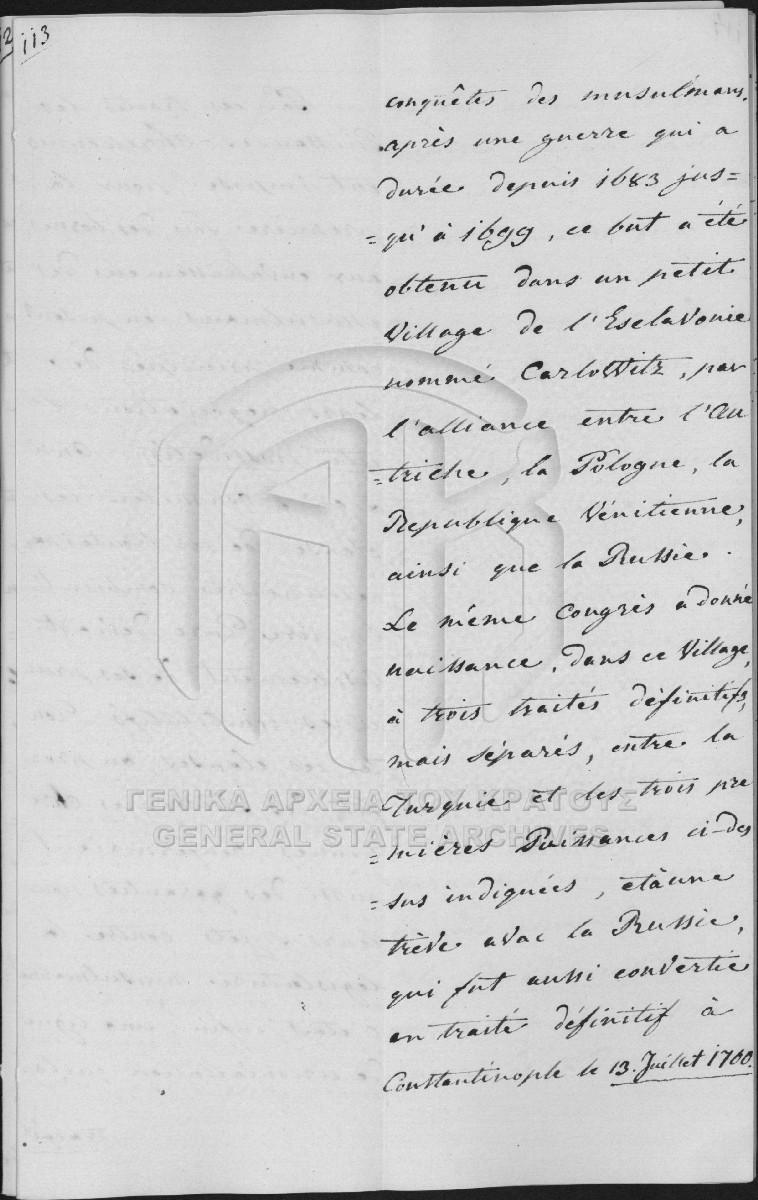 113
conquêtes des musulmans.
après une guerre qui a
durée depuis 1683 jus=
=qu'à 1699, ce but a été
obtenu dans un petit
Village de l'Esclavonie
nommé CarloWitz, par
l'alliance entre l'Au
=triche, la Pologne, la
Republique Vénitienne,
ainsi que la Russie.
Le même Congrès a donné
naissance, dans ce Village,
à trois traités définitifs,
mais séparés, entre la
Turquie et les trois pre
=mières Puissances ci-des
=sus indiquées, et à une
trève avec la Russie,
qui fut aussi convertie
en traité définitif à
Constantinople le 13. Juillet 1700.
ΓΕΝΙΚΑ ΑΡΧΕΙΑ ΤΟΥ ΚΡΑΤΟΥΣ
GENERAL STATE ARCHIVES